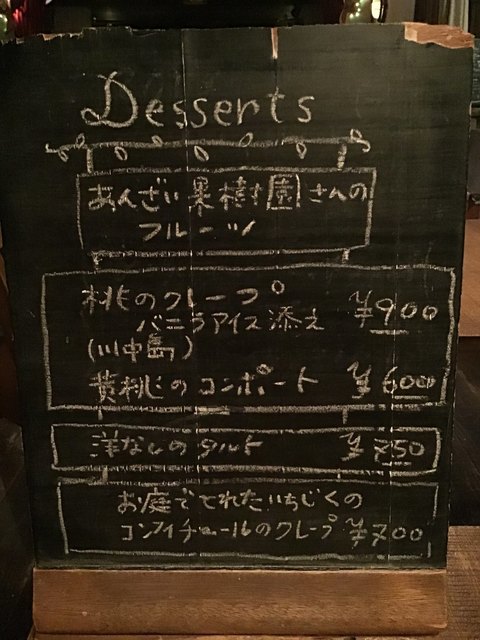 Desserts
あんざい果樹園さんの
フルーツ
桃のクレープ
バニラアイス添え ¥900
(川中島)
黄桃のコンポート ¥600
洋なしのタルト ¥750
お庭でとれたいちじくの
コンフィチュールのクレープ ¥700